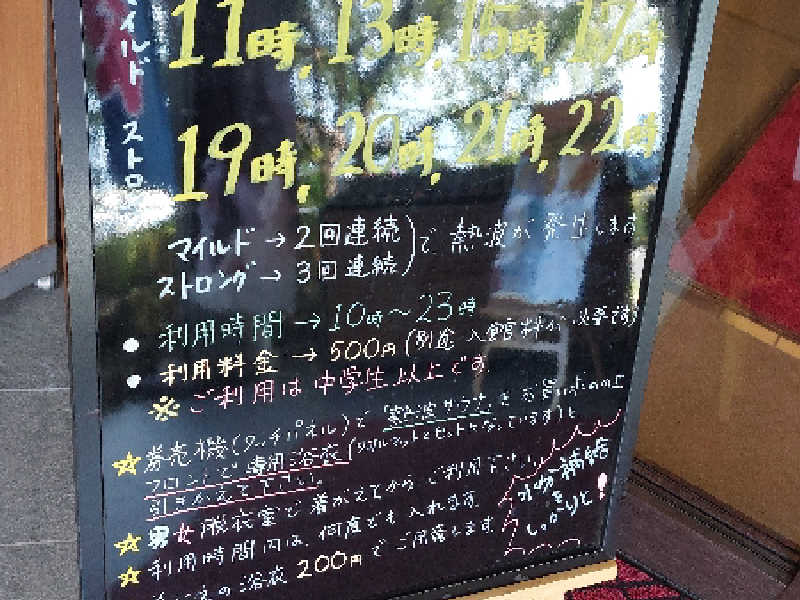 マイルド ストロ
11時, 13時, 15時, 17時
19時, 20時, 21時, 22時
マイルド→2回連続
ストロング→3回連続
で 熱波が発生します
● 利用時間→10時〜23時
● 利用料金→500円(別途 入館料が必要です)
※ご利用は中学生以上です
☆券売機(タッチパネル)で「熱波サウナ」をお買い求めの上
フロントで専用浴衣(タオルマットとセットになっています)と
引きかえて下さい。
☆男女脱衣室で着がえてから ご利用下さい
☆利用時間内は、何度でも入れます
の浴衣200円でご用意します
水分補給
を
しっかりと!